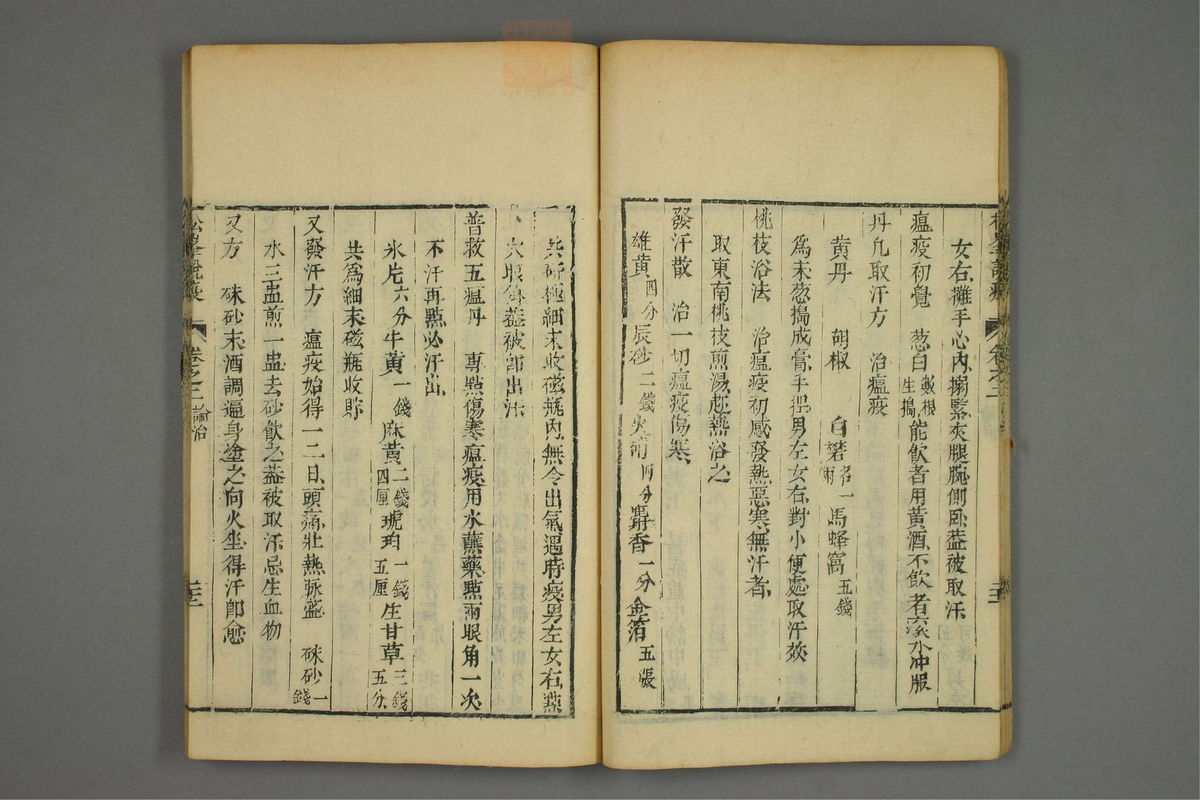 女右攤手心內搦緊夾腿腕側卧葢被取汗
瘟疫初覺 葱白數根生搗能飲者用黃酒不飲者滾水冲服
丹丸取汗方 治瘟疫
黃丹 胡椒 白礬各一兩馬蜂窩五錢
爲末葱搗成膏手捏男左女右對小便處取汗效
桃枝浴法 治瘟疫初感發熱惡寒無汗者
取東南桃枝煎湯趁熱浴之
發汗散 治一切瘟疫傷寒
雄黃四分辰砂二錢火硝四分麝香一分金箔五張
共研極細末收磁瓶內無令出氣遇時疫男左女右蘸
大眼角葢被卽出汗
普救五瘟丹 專點傷寒瘟疫用水蘸藥點兩眼角一次
不汗再點必汗出
氷片六分牛黃一錢麻黃二錢四厘琥珀一錢五厘生甘草三錢五分
共爲細末磁瓶收貯
又發汗方 瘟疫始得一二日頭痛壯熱脉盛 硃砂一錢
水三盅煎一盅去砂飲之葢被取汗忌生血物
又方 硃砂末酒調遍身塗之向火坐得汗卽愈
松峯說疫
卷之二
論治